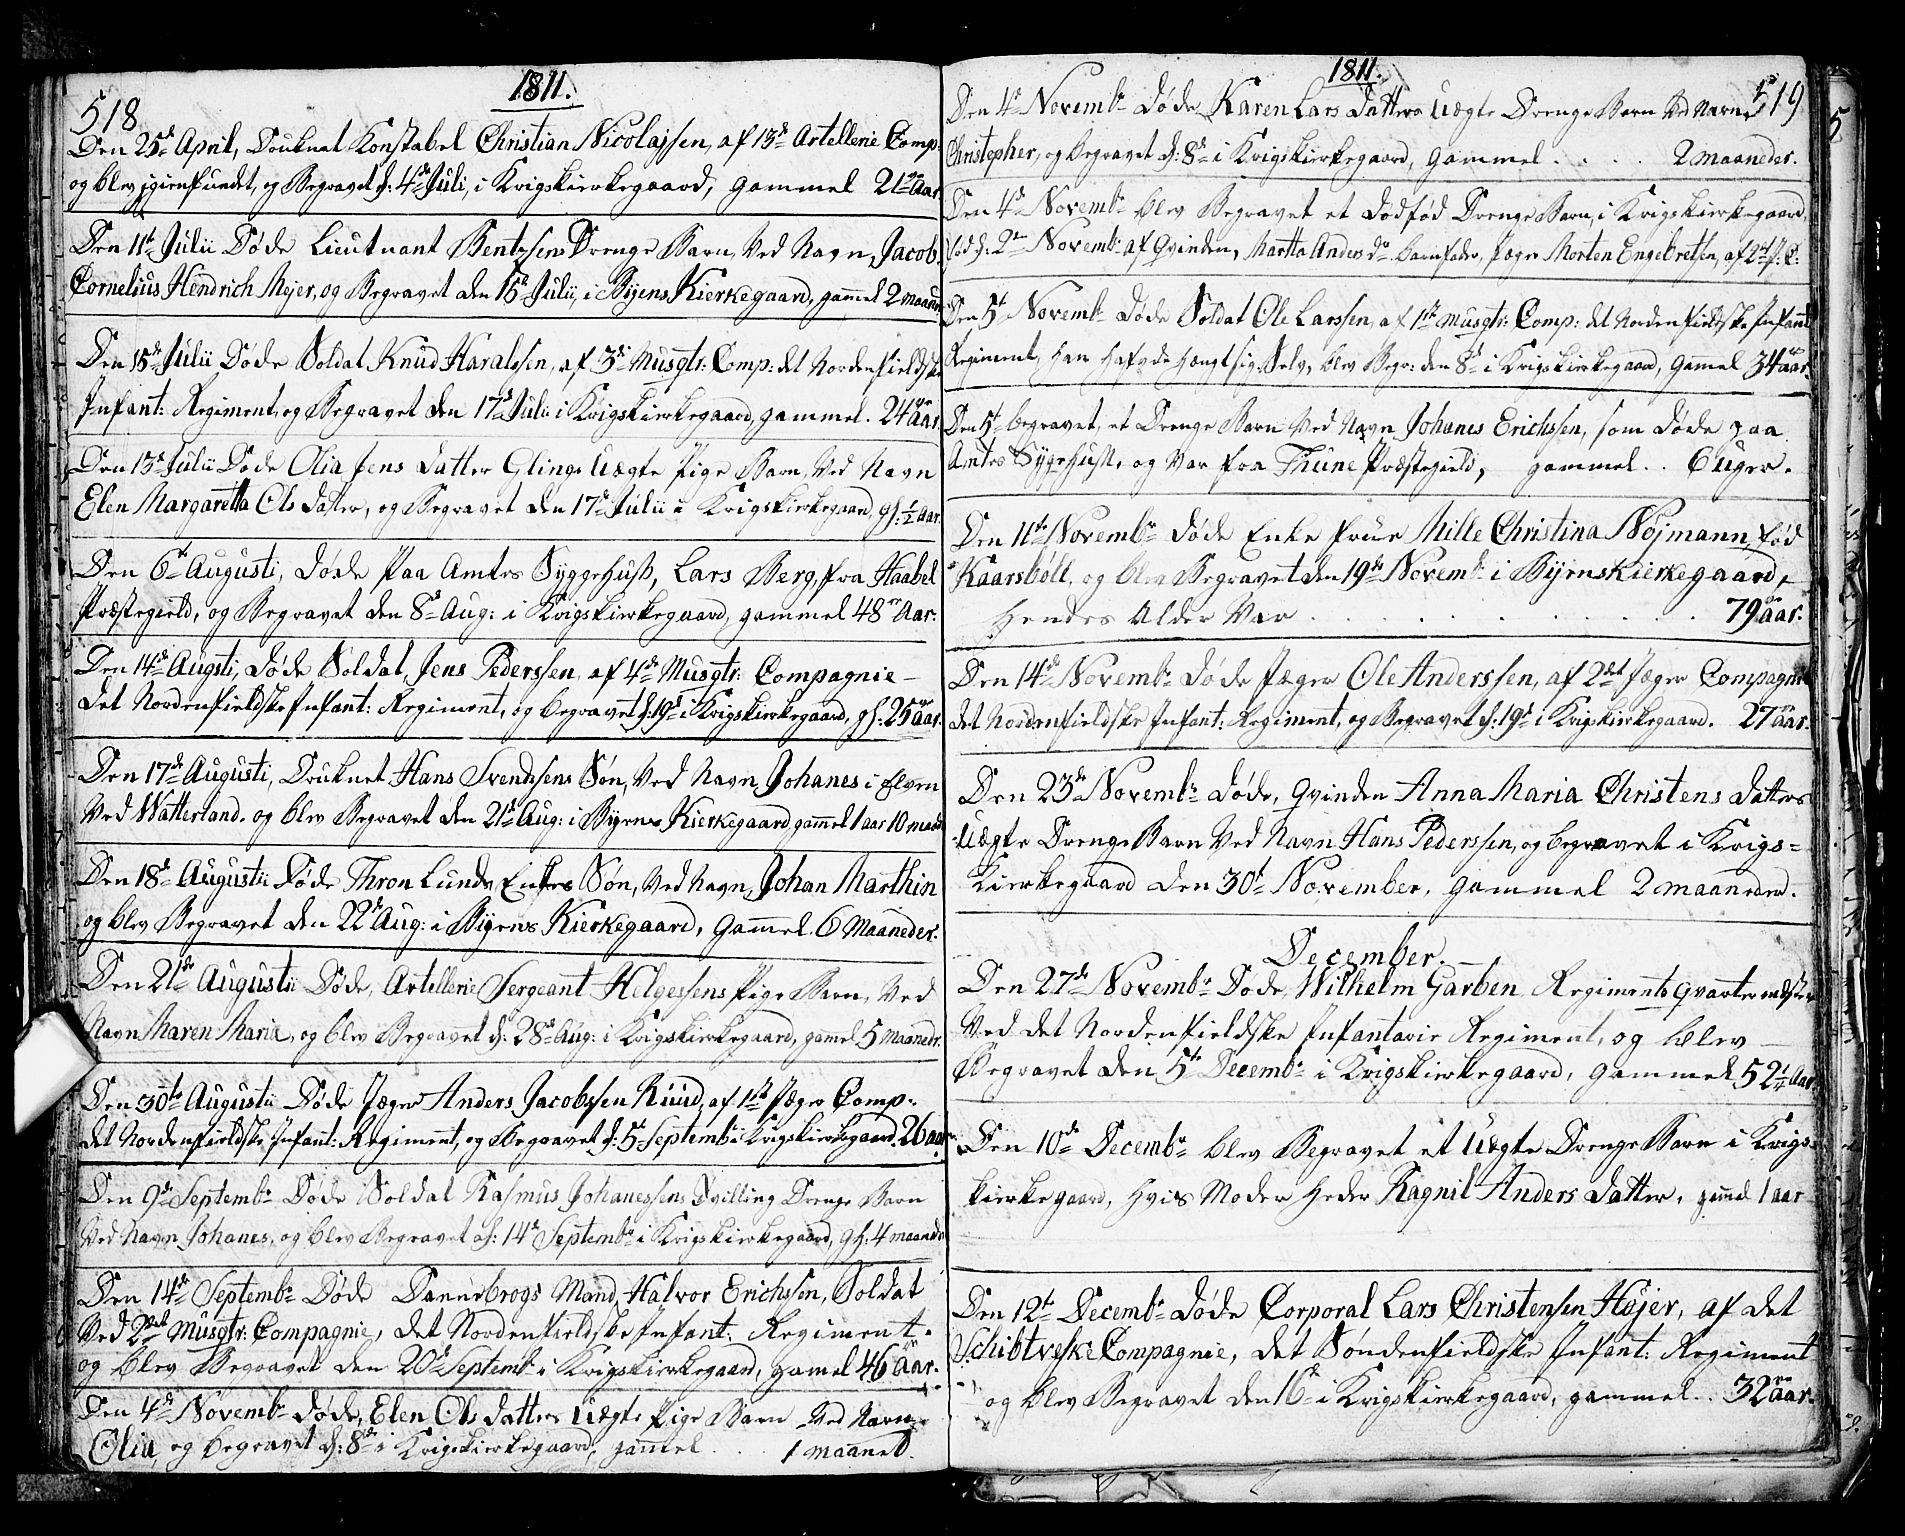 1811.
518
Den 25de April, Druknet Konstabel Christian Nicolajsen, af 13de Artellerie Comp:
og blev igienfundet, og Begravet d: 4de Juli, i Krigskierkegaard, gammel 21 Aar
Den 11te Julii Døde Lieutnant Bentzens Drenge Barn, Ved Navn, Jacob
Cornelius Hendrich Mejer, og Begravet den 15de Julii, i Byens Kierkegaard, gamel 2 maaneder
Den 15de Julii Døde Soldat Knud Haralssen, af 3die Musqtr: Comp: det Nordenfieldske
Infant: Regiment, og Begravet den 17de Julii i Krigskierkegaard, gammel. 24 aar.
Den 13de Julii Døde Olia Jens Datter Glings Uægte Pige Barn, Ved Navn
Elen Margaretta Ols Datter, og Begravet den 17de Julii i Krigskierkegaard, gl: ½ Aar.
Den 6te Augusti, Døde Paa Amtes Syggehuss, Lars Berg, fra Haabel
Præstegield, og Begravet den 8de Aug: i Krigskierkegaard, gammel 48 Aar.
Den 14de Augsti, Døde Soldat, Jens Pederssen, af 4de Musqtr: Compagnie
det Nordenfieldske Infant: Regiment, og begravet d: 19de i Krigskierkegaard, gl: 25 aar.
Den 17de Augusti, Druknet Hans Svendsens Søn, Ved Navn, Johanes i Elven
Ved Watterland. og blev Begravet den 21de Aug: i Byens Kierkegaard gamel 1 aar 10 maand
Den 18de Augustii Døde Thron Lunds Enkes Søn, Ved Navn, Johan Marthin
og blev Begravet den 22de Aug: i Byens Kierkegaard, gamel. 6 Maaneder.
Den 21de Augustii Døde, Artellerie Sergeant Helgessens Pige Barn, Ved
Navn Maren Maria, og blev Begravet d: 28de Aug: i Krigskierkegaard, gamel 5 Maaneder.
Den 30te Augustii Døde Jæger Anders Jacobssen Ruud, af 1ste Jæger Comp:
det Nordenfieldske Infant: Regiment, og Begravet d: 5te Septemb: i Krigskierkegaard. 26 aar
Den 9de Septembr Døde Soldat Rasmus Johanessens Tvilling Drenge Barn
Ved Navn Johanes, og blev Begravet d: 14de Septembr i Krigskierkegaard, gl: 4 maander
Den 14de Septembr Døde Danebrogs Mand, Halvor Erichssen, Soldat
Ved 2det Musqtr: Compagnie, det Nordenfieldske Infant: Regiment.
og blev Begravet den 20de Septemb: i Krigskierkegaard, gamel 46 aar.
Den 4de Novembr døde, Elen Ols datters Uægte Pige Barn Ved Navn
Olia, og begravet d: 8de i Krigskierkegaard, gamel . . . 1 maaned.
1811.
519
Den 4de Novembr Døde, Karen Lars Datters Uægte Drenge Barn Ved Navn
Christopher, og begravet d: 8de i Krigskierkegaard, gammel . . . . 2 maaneder.
Den 4de Novembr blev Begravet et Dødfød Drenge Barn, i Krigskierkegaard,
fød d: 2de Novembr af Qvinden, Martta Anders dr barnfader, Jæger Morten Engebretsen, af 2det J: C:
Den 5te Novembr Døde Soldat Ole Larssen, af 1ste Musqtr: Comp: det Nordenfieldske Infant
Regiment, han hafvde hængt sig Selv, blev Begr: den 8de i Krigskierkegaard, gamel 34 aar.
Den 5te begravet, et Drenge Barn Ved Navn Johanes Erichssen, som Døde paa
Amtes Sygehuss, og Var fra Thune Præstegield, gammel . . 6 uger.
Den 11te Novembr døde Enke Frue Mille Christina Nøjmann, fød
Kaarsbøll, og blev Begravet den 19de Novemb: i Byens Kierkegaard,
hendes Alder Var . . . . . . . . 79 aar.
Den 14de Novembr døde Jæger Ole Anderssen, af 2det Jæger Compagnie
det Nordenfieldske Infant: Regiment, og Begravet d: 19de i Krigskierkegaard. 27 aar.
Den 23de Novembr Døde, Qvinden Anna Maria Christens Datters
Uægte Drenge Barn Ved Navn Hans Pederssen, og begravet i Krigs=
Kierkegaard den 30te November, gammel 2 maaneder.
December.
Den 27de Novembr Døde, Wilhelm Garben Regiments Qvartermæster
Ved det Nordenfieldske Infanterie Regiment, og blev
Begravet den 5te Decembr i Krigskierkegaard, gammel 52½ Aar
Den 10de Decembr blev Begravet et Uægte Drenge Barn i Krigs=
kierkegaard, hvis Moder heder Ragnil Anders datter, gamel 1 aar
Den 12te Decembr Døde Corporal Lars Christensen Højer, af det
Schibtveske Compagnie, det Søndenfieldske Infant: Regiment
og blev Begravet den 16de i Krigskierkegaard, gammel . . 32 aar.